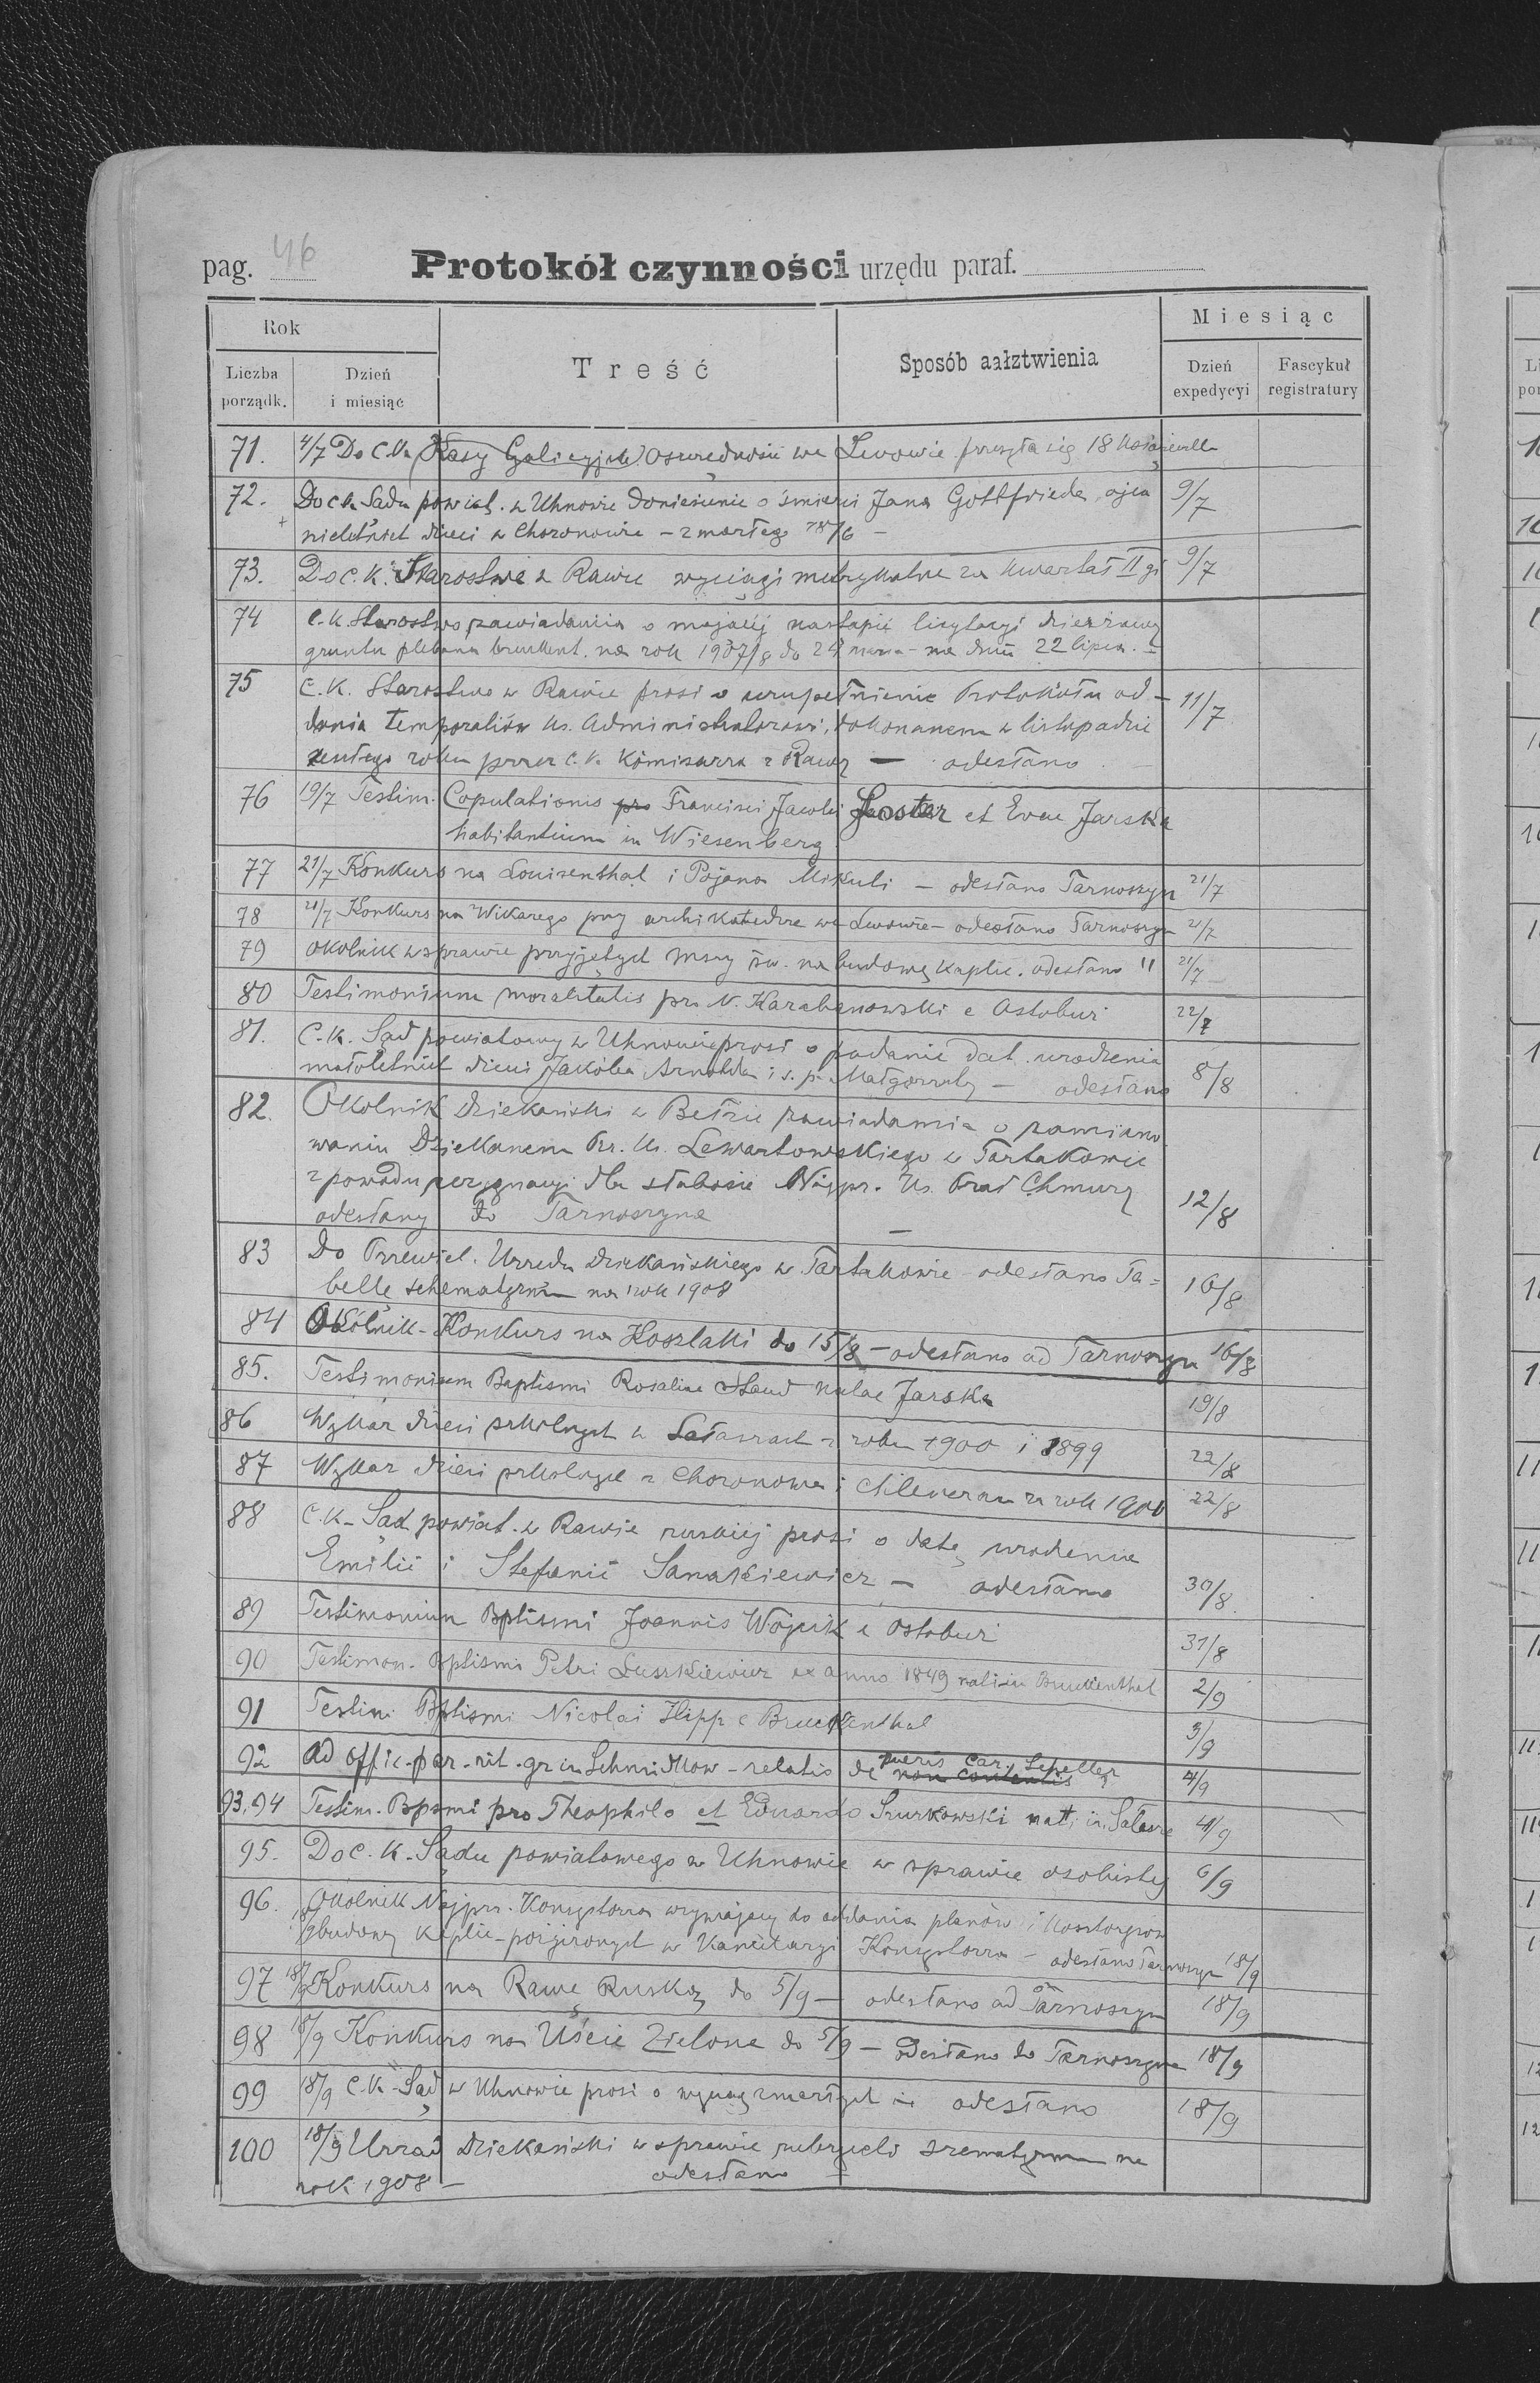 pag. 46 Protokół czynności urzędu paraf.
Rok
Miesiąc
Liczba porządk.
Dzień i miesiąc
Treść
Sposób aałztwienia
Dzień expedycyi
Fascykuł registratury
71. 4/7 Do C.K. Kasy Galicyjsk. we Lwowie przesyła się 18
72. Do c.k. Sądu powiat. w Uhnowie doniesienie o śmierci Jana Gottfrieda, ojca 9/7
nieletnich dzieci w Choronowie - zmarłego 28/6 -
73. Do C.K. Starostwa w Rawie wyciągi metrykalne za kwartał II gi 9/7
74 C.K. Starostwo zawiadamia o mającej nastąpić licytacyi dzierżawy
gruntu plebana bruckent. na rok 1907/8 do 24 marca - na dniu 22 lipca. -
75 C.K. Starostwo w Rawie prosi o uzupełnienie Protokołu od- 11/7
dania temporaliów ks. Administratorowi, dokonanem w listopadzie
zeszłego roku przez C.K. Komisarza z Rawy — odesłano
76 19/7 Testim. Copulationis pro Francisci Jacobi et Evae Jarska
habitantium in Wiesenberg
77 21/7 Konkurs na Louisenthal i Pojana Mikuli - odesłano Tarnoszyn 21/7
78 21/7 Konkurs na Wikarego przy archikatedrze we Lwowie - odesłano Tarnoszyn 21/7
79 Okolnik w sprawie przyjętych mszy św. na budowę kaplic. odesłano " 21/7
80 Testimonium moralitatis pro N. Karabanowski e Ostobuż 22/7
81. C.K. Sąd powiatowy w Uhnowie prosi o podanie dat. urodzenia
małoletnich dzieci Jakóba Arnolda i s. p. Małgorzaty - odesłano 8/8
82. Okolnik dziekański w Bełzie zawiadamia o zamiano-
waniu Dziekanem Pr. ks. Lewartowskiego w Tartakowie
z powodu rezygnacyi dla słabości Najpr. ks. Prał Chmury
odesłany do Tarnoszyna — 12/8
83 Do Przewiel. Urzędu dziekańskiego w Tartakowie odesłano Ta=
belle schematyzmu na rok 1908 16/8
84 Okólnik - Konkurs na Koszlaki do 15/8 - odesłano ad Tarnoszyn 16/8
85. Testimonium Baptismi Rosaliae natae Jarska 19/8
86 Wykaz dzieci szkolnych w Sałaszach z roku 1900 i 1899 22/8
87 Wykaz dzieci szkolnych z Choronowa i Chlewczan za rok 1900 22/8
88 C.K. Sąd powiat. w Rawie ruskiej prosi o datę urodzenia
Emilii i Stefanii - odesłano 30/8
89 Testimonium Bptismi Joannis Wójcik e Ostobuż 31/8
90 Testimon. Bptismi Petri Luszkiewicz ex anno 1849 nati in Bruckenthal 2/9
91 Testim. Bptismi Nicolai Hipp e Bruckenthal 3/9
92 Ad offic. par. rit. gr in - relatio de pueris Car. non contentis 4/9
93, 94 Testim. Bpsmi pro Theophilo et Eduardo Szurkowski nat. in Sałasze 4/9
95. Do C.K. Sądu powiatowego w Uhnowie w sprawie osobistej 6/9
96. Okolnik Najprz. Konsystorza wzywający do oddania planów i kosztorysów
budowy kaplic w kancelaryi Konsystorza - odesłano Tarnoszyn 18/9
97 18/9 Konkurs na Rawę Ruską do 5/9 - odesłano ad Tarnoszyn 18/9
98 18/9 Konkurs na Uście Zielone do 5/9 - odesłano do Tarnoszyna 18/9
99 18/9 C.K. Sąd w Uhnowie prosi o zmarłych odesłano 18/9
100 18/9 Urząd dziekański w sprawie na
rok 1908 - odesłano